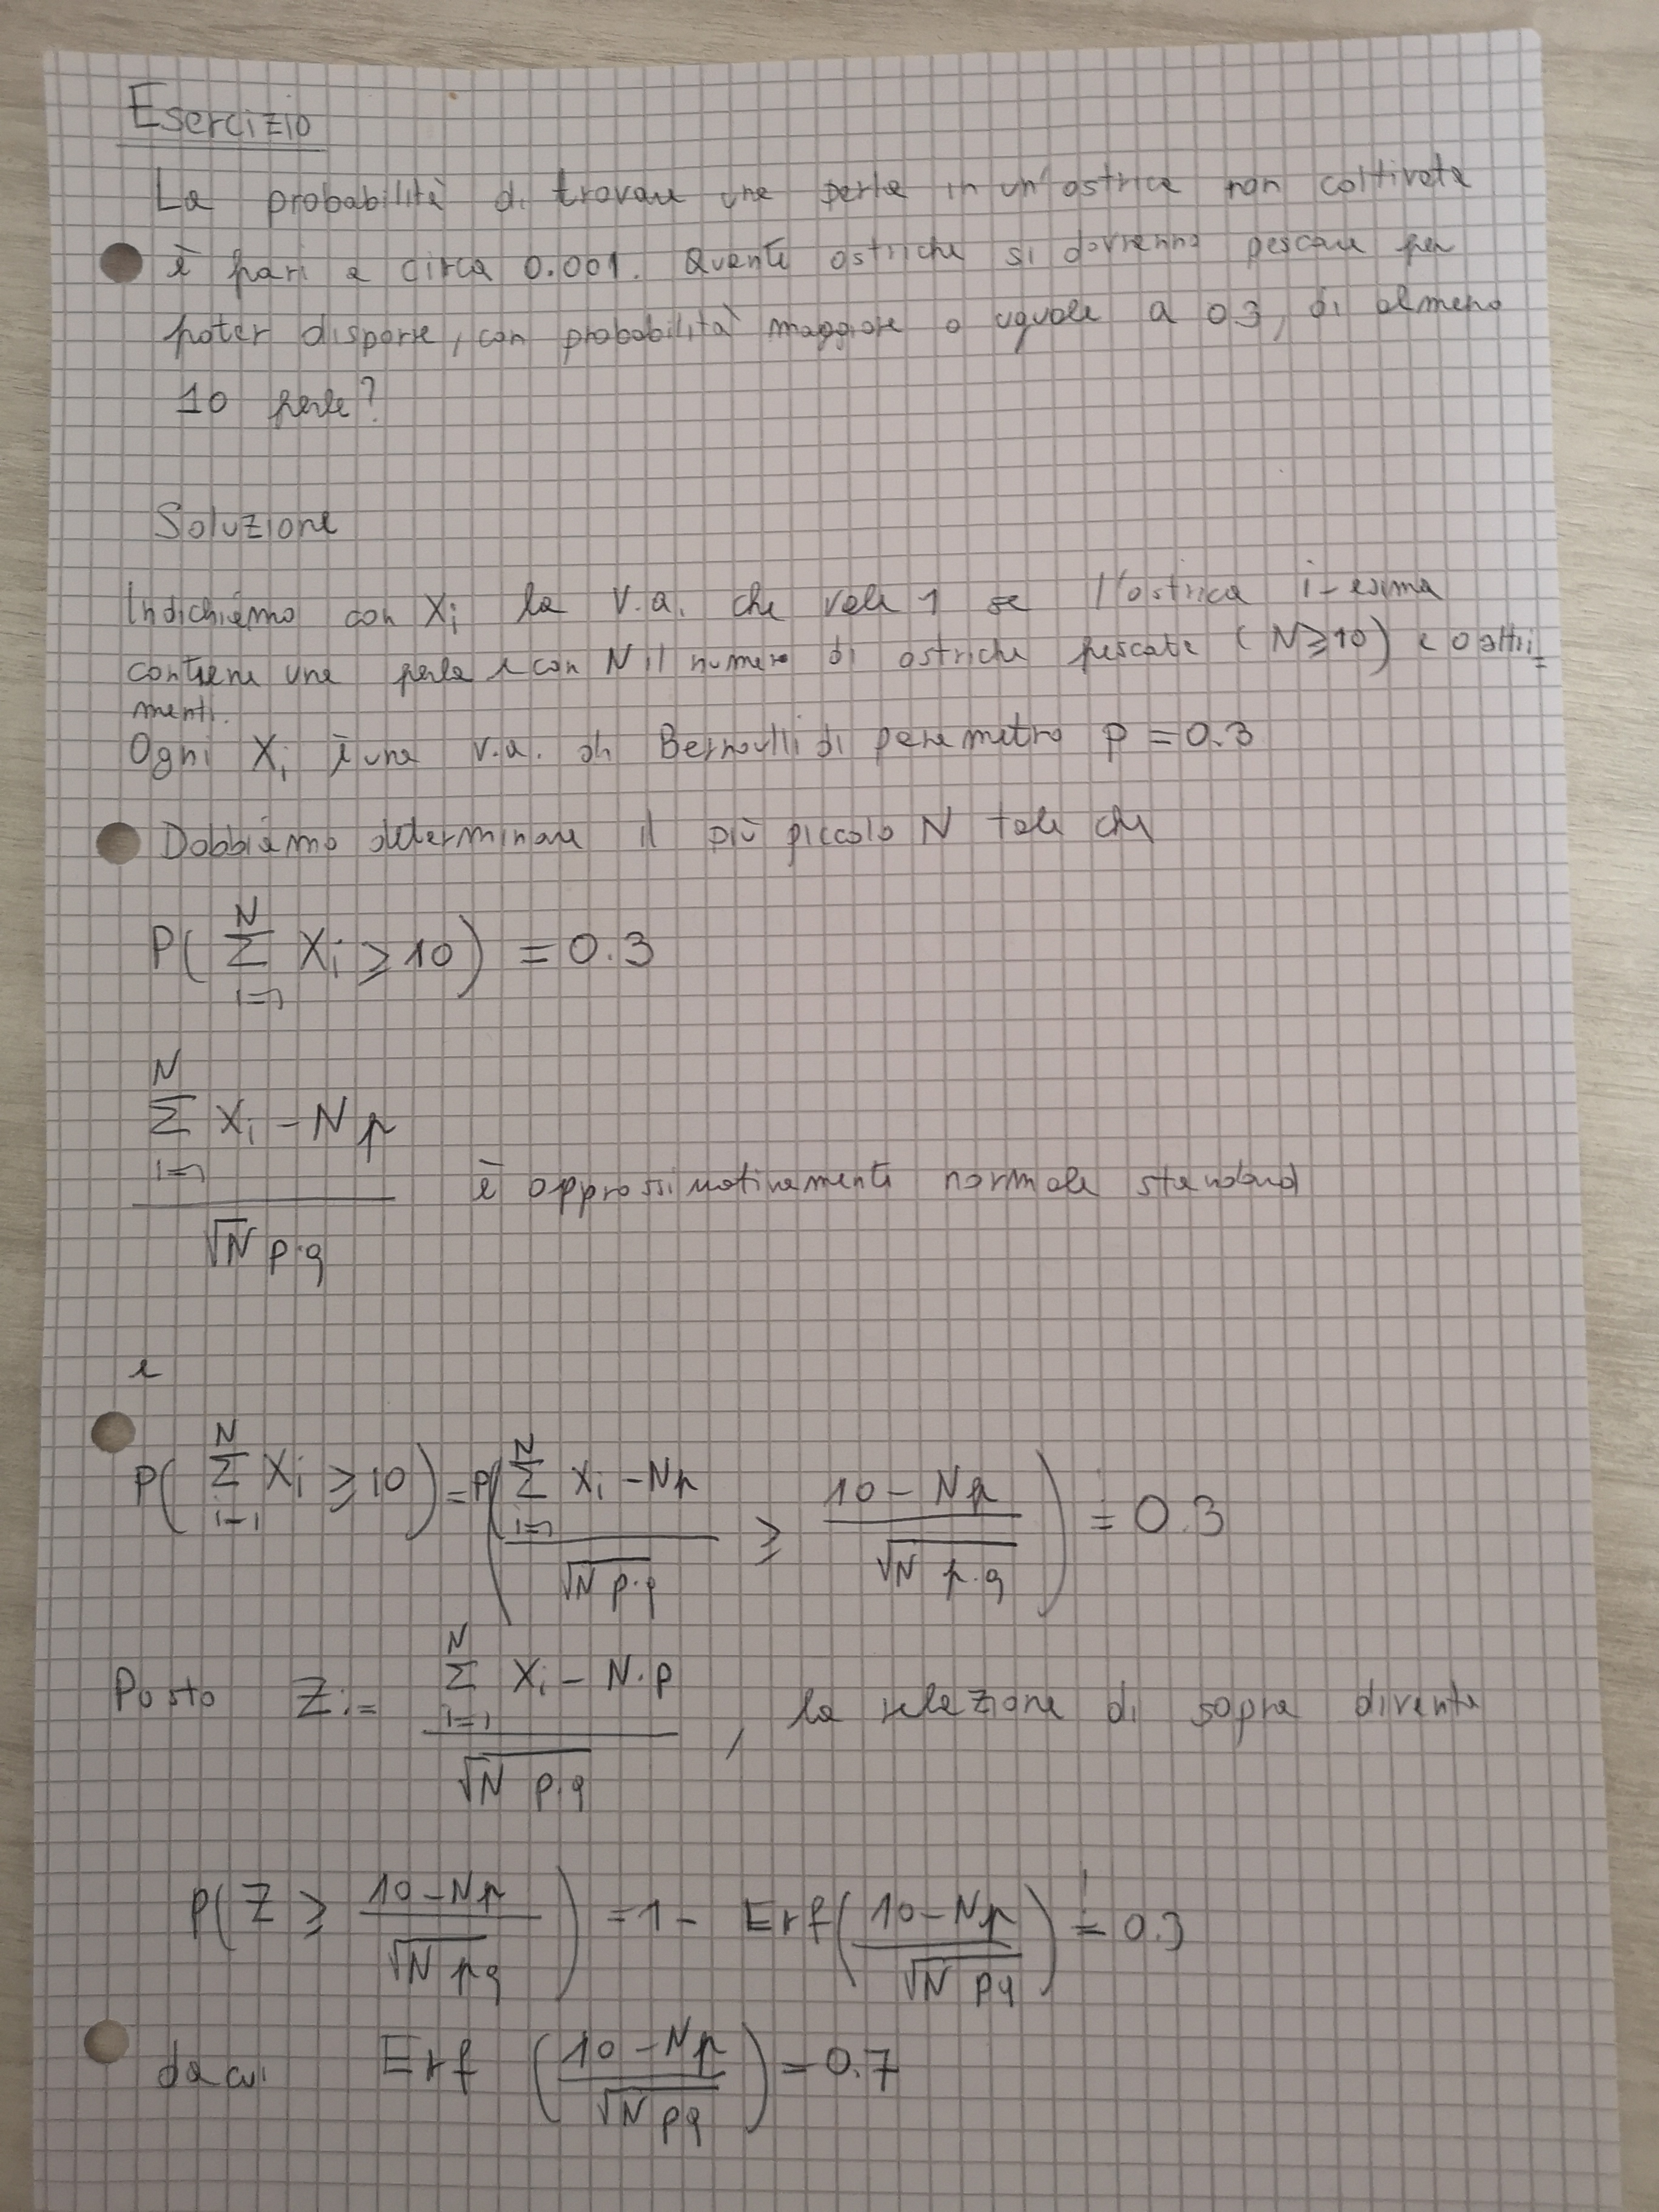 Esercizio
La probabilità di trovare una perla in un'ostrica non coltivata
è pari a circa 0.001. Quante ostriche si dovranno pescare per
poter disporre, con probabilità maggiore o uguale a 0.3, di almeno
10 perle?
Soluzione
Indichiamo con Xi la v.a. che vale 1 se l'ostrica i-esima
contiene una perla e con N il numero di ostriche pescate (N≥10) e 0 altri=
menti.
Ogni Xi è una v.a. di Bernoulli di parametro p = 0.3
Dobbiamo determinare il più piccolo N tale che
P( ∑_{i=1}^{N} Xi ≥ 10 ) = 0.3
(∑_{i=1}^{N} Xi - Np) / √(N p·q) è approssimativamente normale standard
e
P( ∑_{i=1}^{N} Xi ≥ 10 ) = P( (∑_{i=1}^{N} Xi - Np) / √(N p·q) ≥ (10 - Np) / √(N p·q) ) =! 0.3
Posto Z := (∑_{i=1}^{N} Xi - N·p) / √(N p·q) , la relazione di sopra diventa
P( Z ≥ (10-Np) / √(N pq) ) = 1 - Erf( (10-Np) / √(N pq) ) =! 0.3
da cui Erf ( (10-Np) / √(N pq) ) = 0.7